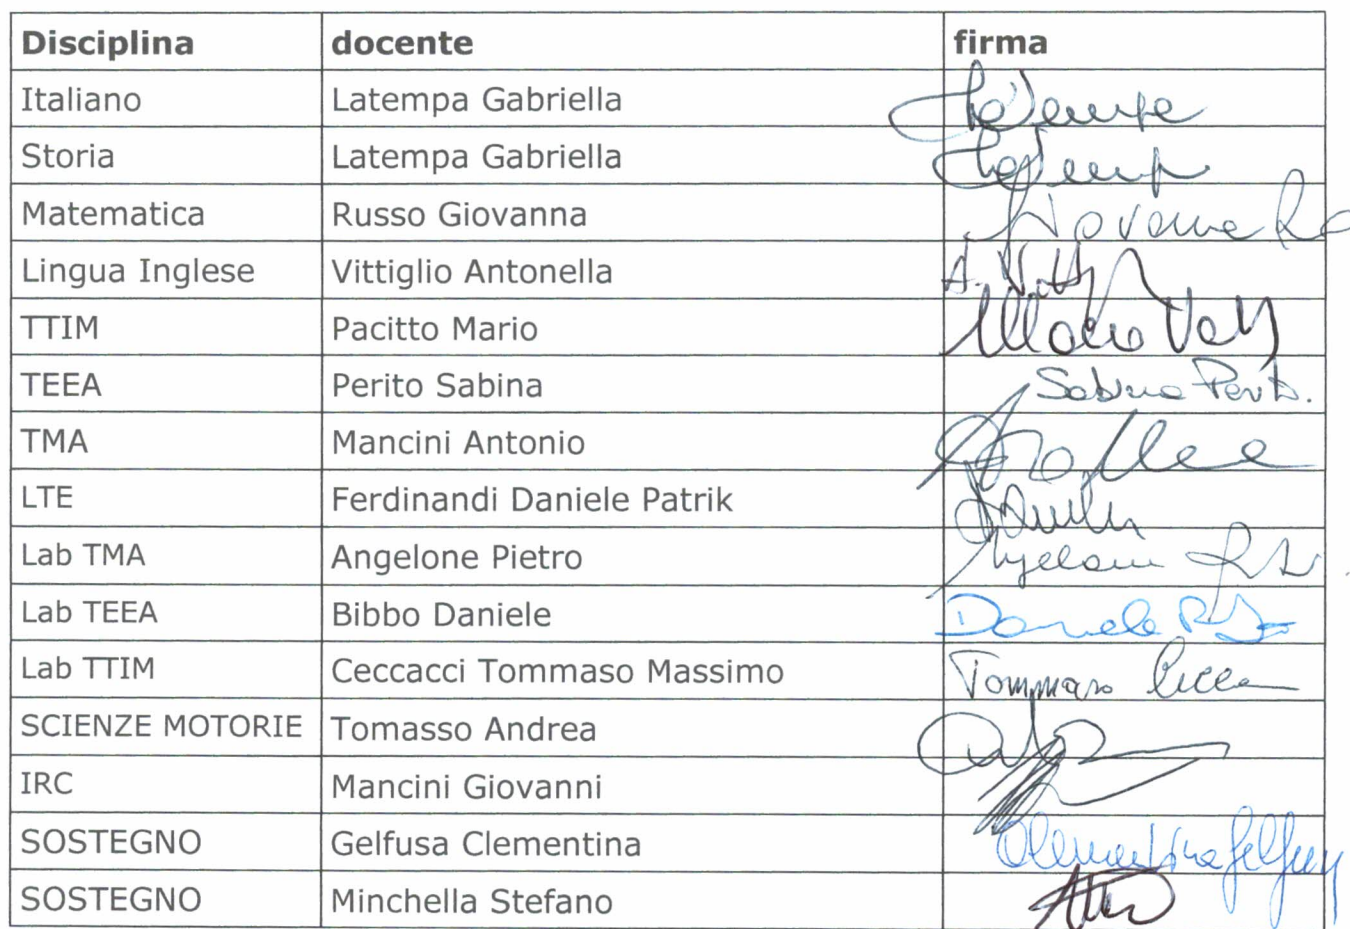 Disciplina docente firma
Italiano Latempa Gabriella
Storia Latempa Gabriella
Matematica Russo Giovanna Giovanna
Lingua Inglese Vittiglio Antonella A.
TTIM Pacitto Mario Mario
TEEA Perito Sabina Sabina
TMA Mancini Antonio
LTE Ferdinandi Daniele Patrik
Lab TMA Angelone Pietro
Lab TEEA Bibbo Daniele Daniele
Lab TTIM Ceccacci Tommaso Massimo Tommaso
SCIENZE MOTORIE Tomasso Andrea
IRC Mancini Giovanni
SOSTEGNO Gelfusa Clementina Clementina
SOSTEGNO Minchella Stefano